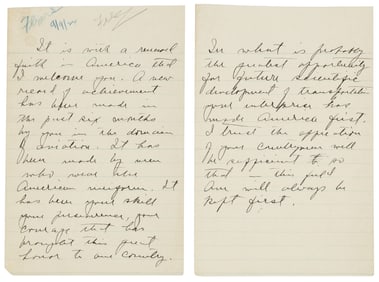 9/9/24
It is with a renewed
faith in America that
I welcome you. A new
record of achievement
has been made in
the past six months
by you in the domain
of aviation. It has
been made by men
who wear the
American uniform. It
has been your skill
your perseverance, your
courage that has
brought this great
honor to our country.
In what is probably
the greatest opportunity
for future scientific
development of transportation
your enterprise has
made America first.
I trust the appreciation
of your countrymen will
be sufficient to so
that in this field
Am will always be
kept first.